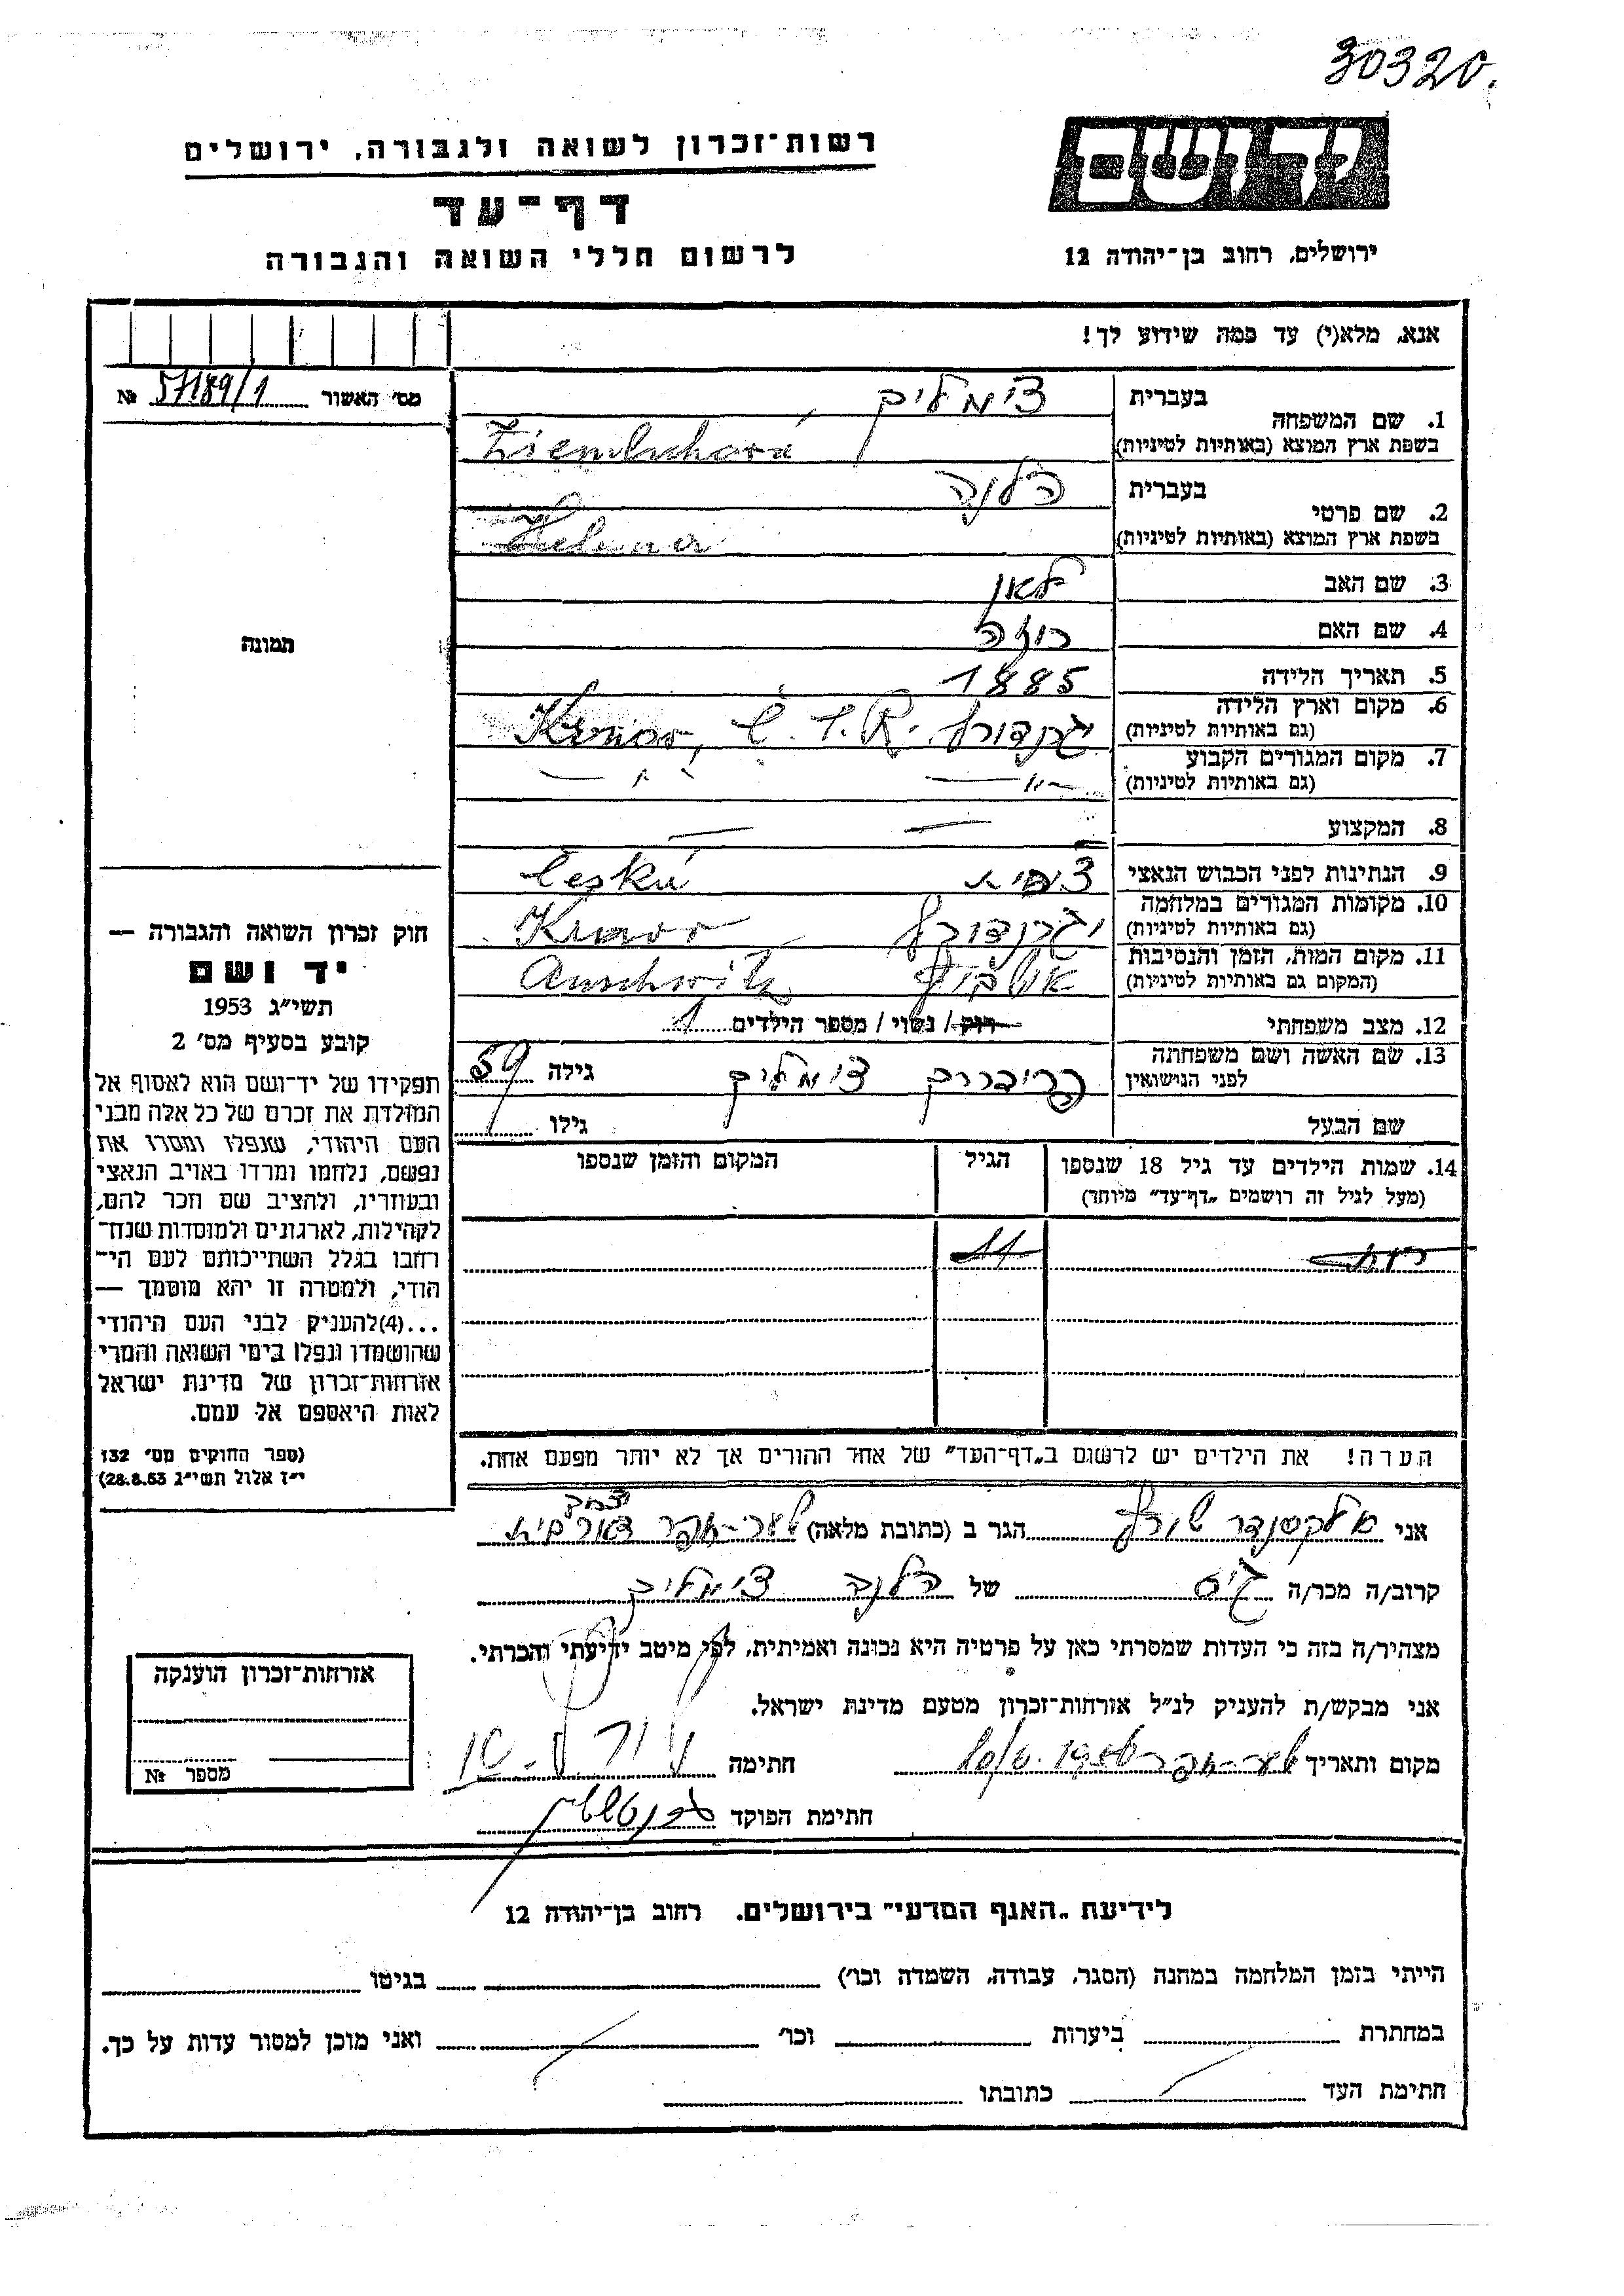 30320.
יד ושם
רשות־זכרון לשואה ולגבורה, ירושלים
דף־עד
לרשום חללי השואה והגבורה
ירושלים, רחוב בן־יהודה 12
אנא, מלא(י) עד כמה שידוע לך!
מס' האשור 57189/1 №
תמונה
חוק זכרון השואה והגבורה —
יד ושם
תשי"ג 1953
קובע בסעיף מס' 2
תפקידו של יד־ושם הוא לאסוף אל
המולדת את זכרם של כל אלה מבני
העם היהודי, שנפלו ומסרו את
נפשם, נלחמו ומרדו באויב הנאצי
ובעוזריו, ולהציב שם וזכר להם,
לקהילות, לארגונים ולמוסדות שנח־
רחבו בגלל השתייכותם לעם הי־
הודי, ולמטרה זו יהא מוסמך —
...(4)להעניק לבני העם היהודי
שהושמדו ונפלו בימי השואה והמרי
אזרחות־זכרון של מדינת ישראל
לאות היאספם אל עמם.
(ספר החוקים מס' 132
י"ז אלול תשי"ג 28.8.53)
בעברית צימליך
1. שם המשפחה
בשפת ארץ המוצא (באותיות לטיניות)
בעברית הלנה
2. שם פרטי
בשפת ארץ המוצא (באותיות לטיניות) Helena
3. שם האב לאון
4. שם האם רוזה
5. תאריך הלידה 1885
6. מקום וארץ הלידה
(גם באותיות לטיניות) יגרנדורף Krnov, Č.S.R.
7. מקום המגורים הקבוע
(גם באותיות לטיניות) —"— —"—
8. המקצוע — —
9. הנתינות לפני הכבוש הנאצי צ'כית česká
10. מקומות המגורים במלחמה
(גם באותיות לטיניות) יגרנדורף Krnov
11. מקום המות, הזמן והנסיבות
(המקום גם באותיות לטיניות) אושביץ Auschwitz
12. מצב משפחתי רווק / נשוי / מספר הילדים 1
13. שם האשה ושם משפחתה
לפני הנישואין צימליך גילה 59
שם הבעל גילו
14. שמות הילדים עד גיל 18 שנספו הגיל המקום והזמן שנספו
(מעל לגיל זה רושמים "דף־עד" מיוחד)
רות 11
הערה! את הילדים יש לרשום ב"דף־העד" של אחד ההורים אך לא יותר מפעם אחת.
אני אלכסנדר שורץ הגר ב (כתובת מלאה) שער־חפר
קרוב/ה מכר/ה גיס של הלנה צימליך
מצהיר/ה בזה כי העדות שמסרתי כאן על פרטיה היא נכונה ואמיתית, לפי מיטב ידיעתי והכרתי.
אני מבקש/ת להעניק לנ"ל אזרחות־זכרון מטעם מדינת ישראל.
מקום ותאריך שער־חפר חתימה
חתימת הפוקד
אזרחות־זכרון הוענקה
מספר №
לידיעת "האגף המדעי" בירושלים, רחוב בן־יהודה 12
הייתי בזמן המלחמה במחנה (הסגר, עבודה, השמדה וכו') בגיטו
במחתרת ביערות וכו' ואני מוכן למסור עדות על כך.
חתימת העד כתובתו